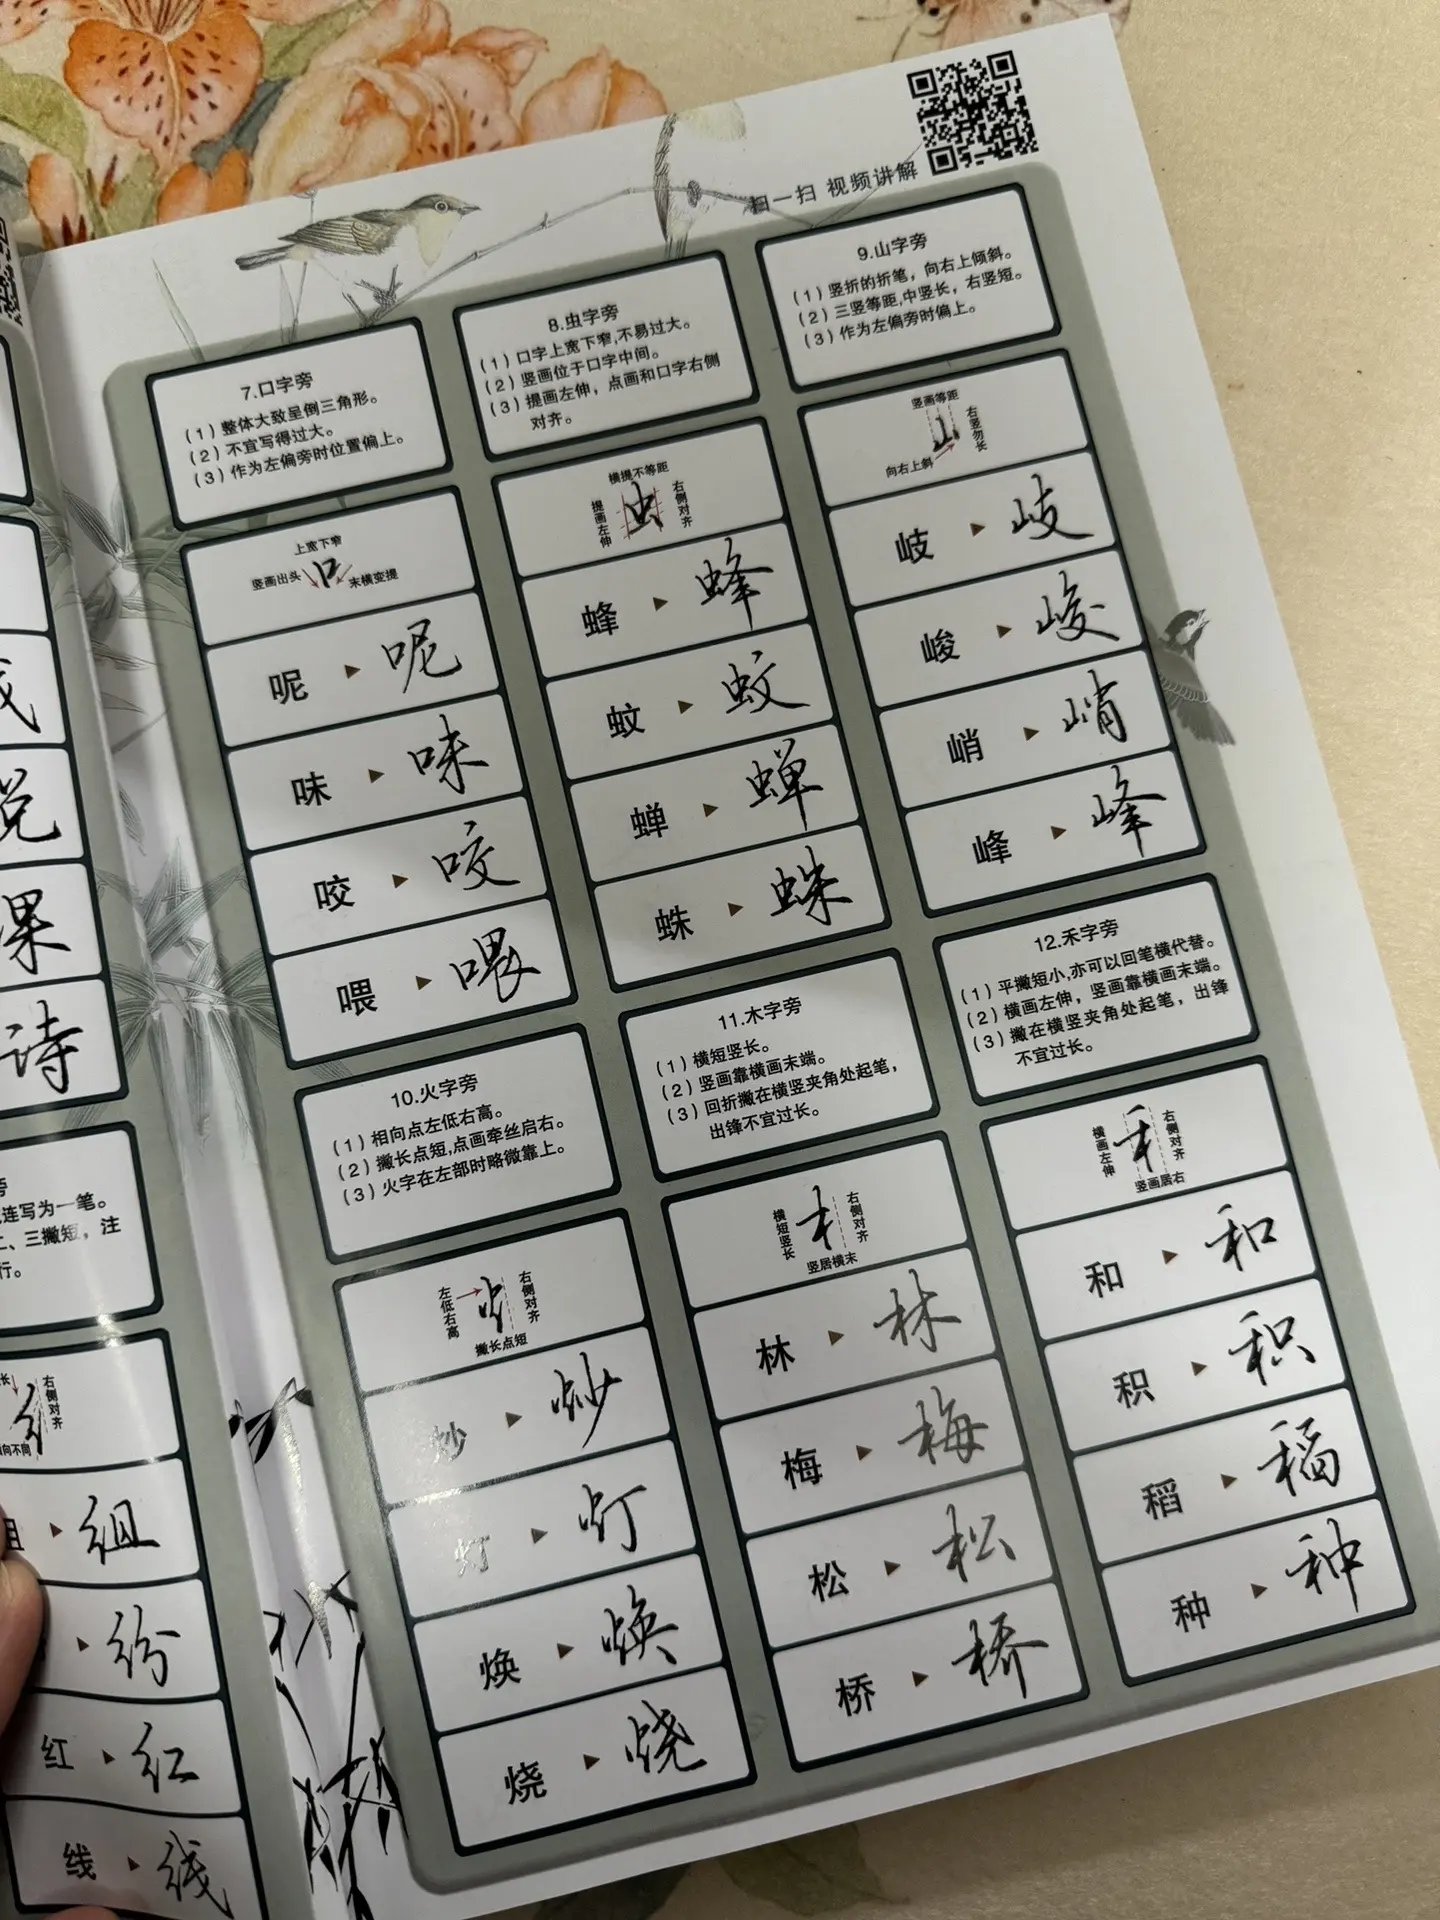 扫一扫 视频讲解
7.口字旁
(1)整体大致呈倒三角形。
(2)不宜写得过大。
(3)作为左偏旁时位置偏上。
上宽下窄
竖画出头
口
末横变提
呢 呢
味 味
咬 咬
喂 喂
8.虫字旁
(1)口字上宽下窄,不易过大。
(2)竖画位于口字中间。
(3)提画左伸，点画和口字右侧
对齐。
横提不等距
提画左伸
虫
右侧对齐
蜂 蜂
蚊 蚊
蝉 蝉
蛛 蛛
9.山字旁
(1)竖折的折笔，向右上倾斜。
(2)三竖等距,中竖长，右竖短。
(3)作为左偏旁时偏上。
竖画等距
山
右竖勿长
向右上斜
岐 岐
峻 峻
峭 峭
峰 峰
10.火字旁
(1)相向点左低右高。
(2)撇长点短,点画牵丝启右。
(3)火字在左部时略微靠上。
左低右高
火
右侧对齐
撇长点短
炒 炒
灯 灯
焕 焕
烧 烧
11.木字旁
(1)横短竖长。
(2)竖画靠横画末端。
(3)回折撇在横竖夹角处起笔，
出锋不宜过长。
横短竖长
右侧对齐
竖居横末
林 林
梅 梅
松 松
桥 桥
12.禾字旁
(1)平撇短小,亦可以回笔横代替。
(2)横画左伸，竖画靠横画末端。
(3)撇在横竖夹角处起笔，出锋
不宜过长。
横画左伸
禾
右侧对齐
竖画居右
和 和
积 积
稻 稻
种 种
课
诗
旁
连写为一笔。
二、三撇短，注
行。
长
右侧对齐
向不同
组
纷
红 红
线 线